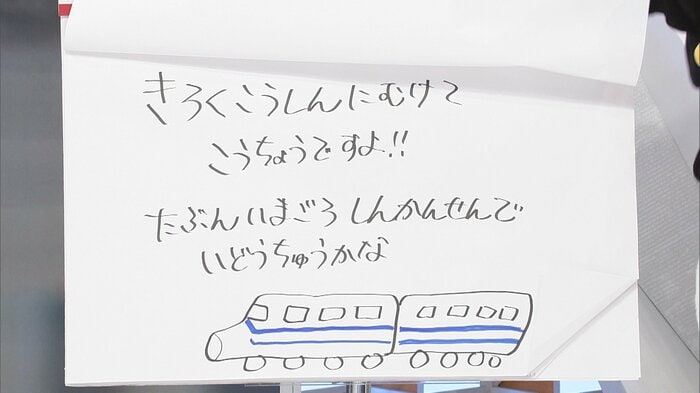 きろくこうしんにむけて
こうちょうですよ!!
たぶんいまごろしんかんせんで
いどうちゅうかな